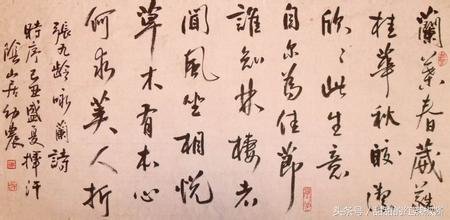 蘭葉春葳蕤
桂華秋皎潔
欣々此生意
自尔為佳節
誰知林棲者
聞風坐相悅
草木有本心
何求美人折
張九齡咏蘭詩
時序己丑盛夏揮汗
陰山居幼農
头条号